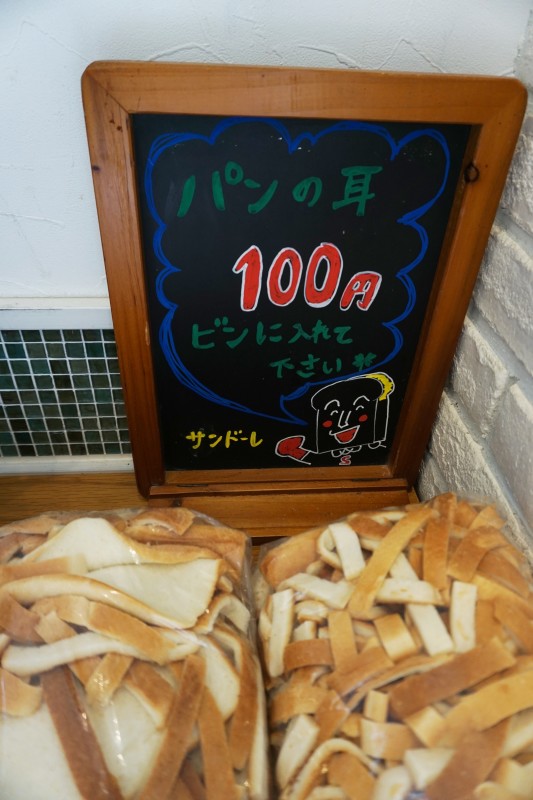 パンの耳
100円
ビンに入れて
下さい
サンドーレ
S